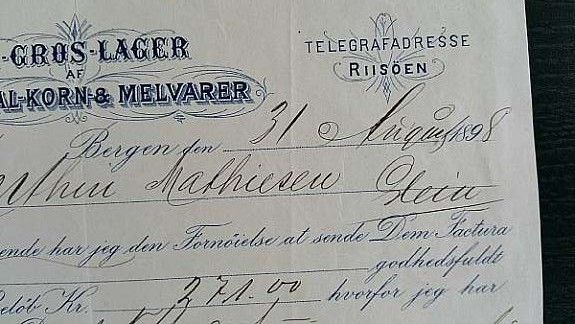 -GROS-LAGER
AF
AL-KORN-& MELVARER
TELEGRAFADRESSE
RIISÖEN
Bergen den 31 August 1898
Mathiesen
ende har jeg den Fornöielse at sende Dem Factura
godhedsfuldt
elöb Kr. 271.00 hvorfor jeg har